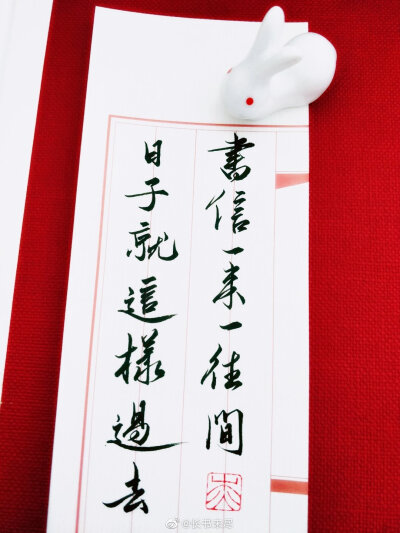 書信一来一往間
日子就這樣過去
@长书未尽